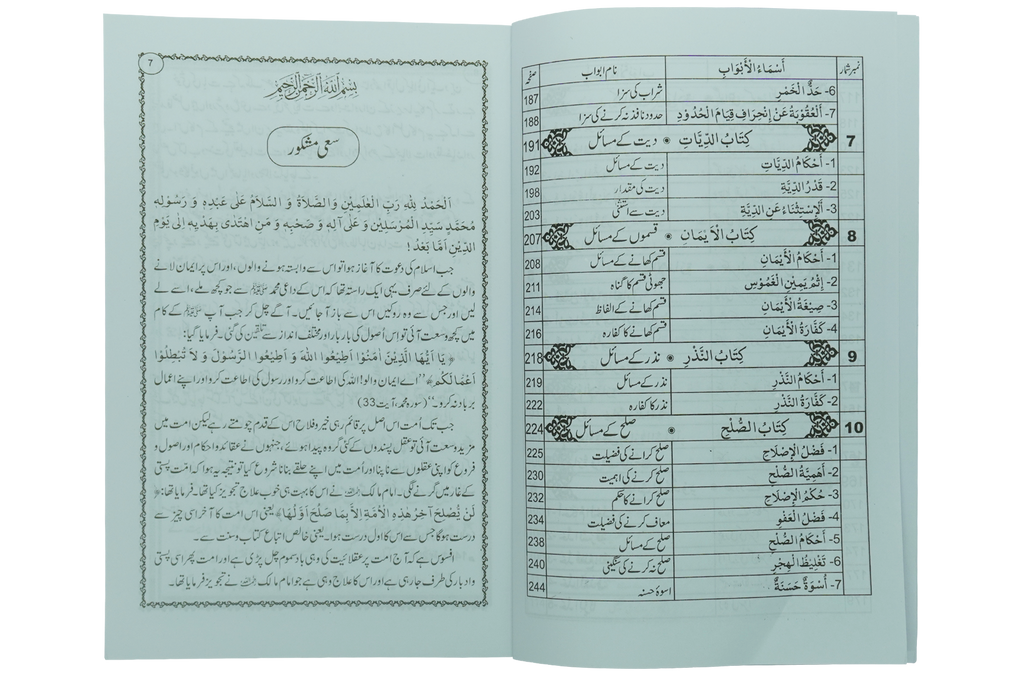 نمبر شمار أَسْمَاءُ الْأَبْوَابِ نام ابواب صفحہ
6- حَدُّ الْخَمْرِ شراب کی سزا 187
7- اَلْعُقُوْبَةُ عَنْ اِنْحِرَافِ قِيَامِ الْحُدُوْدِ حدود نافذ نہ کرنے کی سزا 188
7 كِتَابُ الدِّيَاتِ دیت کے مسائل 191
1- أَحْكَامُ الدِّيَاتِ دیت کے مسائل 192
2- قَدْرُ الدِّيَةِ دیت کی مقدار 198
3- اَلْإِسْتِثْنَاءُ عَنِ الدِّيَةِ دیت سے استثنٰی 203
8 كِتَابُ الْاَيْمَانِ قسموں کے مسائل 207
1- أَحْكَامُ الْأَيْمَانِ قسم کھانے کے مسائل 208
2- اِثْمُ يَمِيْنِ الْغَمُوْسِ جھوٹی قسم کا گناہ 211
3- صِيْغَةُ الْأَيْمَانِ قسم کھانے کے الفاظ 214
4- كَفَّارَةُ الْأَيْمَانِ قسم کھانے کا کفارہ 216
9 كِتَابُ النَّذْرِ نذر کے مسائل 218
1- أَحْكَامُ النَّذْرِ نذر کے مسائل 219
2- كَفَّارَةُ النَّذْرِ نذر کا کفارہ 222
10 كِتَابُ الصُّلْحِ صلح کے مسائل 224
1- فَضْلُ الْإِصْلَاحِ صلح کرانے کی فضیلت 225
2- أَهَمِّيَّةُ الصُّلْحِ صلح کرنے کی اہمیت 230
3- حُكْمُ الْإِصْلَاحِ صلح کرانے کا حکم 232
4- فَضْلُ الْعَفْوِ معاف کرنے کی فضیلت 234
5- أَحْكَامُ الصُّلْحِ صلح کے مسائل 238
6- تَغْلِيْظُ الْهِجْرِ صلح نہ کرنے کی سنگینی 240
7- أُسْوَةٌ حَسَنَةٌ اسوۂ حسنہ 244
7
بِسْمِ اللهِ الرَّحْمٰنِ الرَّحِيْمِ
سعی مشکور
اَلْحَمْدُ لِلّٰهِ رَبِّ الْعٰلَمِيْنَ وَالصَّلَاةُ وَ السَّلَامُ عَلٰى عَبْدِهِ وَ رَسُوْلِهِ
مُحَمَّدٍ سَيِّدِ الْمُرْسَلِيْنَ وَ عَلٰى آلِهِ وَ صَحْبِهِ وَ مَنِ اهْتَدٰى بِهَدْيِهِ اِلٰى يَوْمِ
الدِّيْنِ اَمَّا بَعْدُ !
جب اسلام کی دعوت کا آغاز ہوا تو اس سے وابستہ ہونے والوں، اور اس پر ایمان لانے
والوں کے لئے صرف یہی ایک راستہ تھا کہ اس کے داعی محمد ﷺ سے جو کچھ ملے، اسے لے
لیں اور جس سے وہ روکیں اس سے باز آ جائیں۔ آگے چل کر جب آپ ﷺ کے کام
میں کچھ وسعت آئی تو اس اصول کی بار بار اور مختلف انداز سے تلقین کی گئی۔ فرمایا گیا:
﴿ يَا اَيُّهَا الَّذِيْنَ اٰمَنُوْا اَطِيْعُوا اللهَ وَ اَطِيْعُوا الرَّسُوْلَ وَ لَا تُبْطِلُوْا
اَعْمَالَكُمْ ﴾ ”اے ایمان والو! اللہ کی اطاعت کرو اور رسول کی اطاعت کرو اور اپنے اعمال
برباد نہ کرو۔“ (سورہ محمد، آیت 33)
جب تک اُمت اس اصل پر قائم رہی خیر و فلاح اس کے قدم چومتے رہے لیکن امت میں
مزید وسعت آئی تو عقل پسندوں کے کئی گروہ پیدا ہوئے، جنہوں نے عقائد و احکام اور اصول و
فروع کو اپنی عقلوں سے ناپنا اور اُمت میں اپنے حلقے بنانا شروع کیا تو نتیجہ یہ ہوا کہ امت پستی
کے غار میں گرنے لگی۔ امام مالک نے اس کا بہت ہی خوب علاج تجویز کیا تھا۔ فرمایا تھا: ﴿
لَنْ يُّصْلِحَ آخِرَ هٰذِهِ الْاُمَّةِ اِلَّا بِمَا صَلَحَ اَوَّلُهَا ﴾ یعنی اس امت کا آخر اسی چیز سے
درست ہو گا جس سے اس کا اول درست ہوا۔ یعنی خالص اتباع کتاب و سنت سے۔
افسوس ہے کہ آج امت پر عقلانیت کی وہی باد سموم چل پڑی ہے اور امت پھر اسی پستی
و ادبار کی طرف جا رہی ہے اور اس کا علاج وہی ہے جو امام مالک نے تجویز فرمایا تھا۔